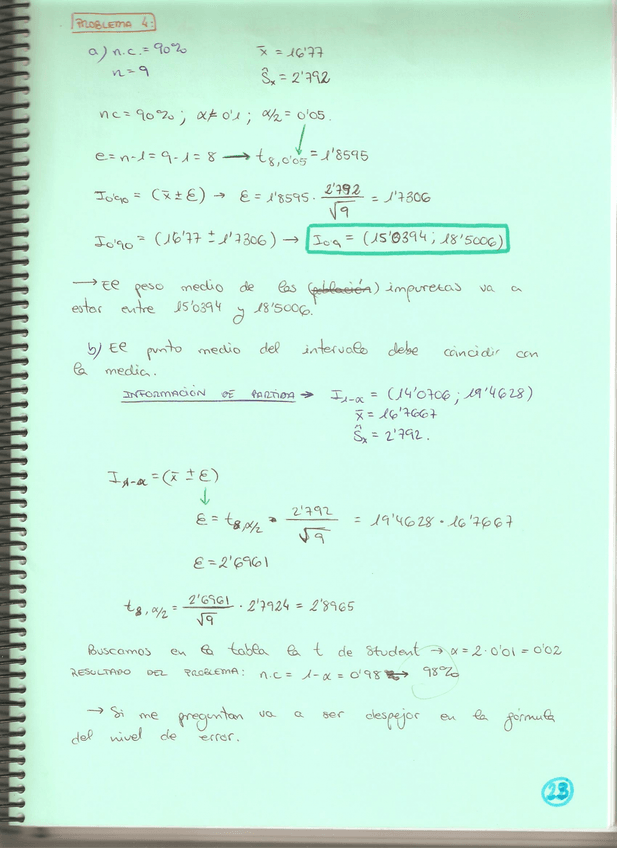 PROBLEMA 4:
a) n.c. = 90% x̄ = 16'77
n = 9 Ŝx = 2'792
nc = 90% ; α = 0'1 ; α/2 = 0'05.
e = n-1 = 9-1 = 8 → t8,0'05 = 1'8595
I0'90 = (x̄ ± ε) → ε = 1'8595 · 2'792/√9 = 1'7306
I0'90 = (16'77 ± 1'7306) → I0'9 = (15'0394 ; 18'5006)
→ El peso medio de las (población) impurezas va a
estar entre 15'0394 y 18'5006.
b) El punto medio del intervalo debe coincidir con
la media.
INFORMACIÓN DE PARTIDA → I1-α = (14'0706 ; 19'4628)
x̄ = 16'7667
Ŝx = 2'792.
I1-α = (x̄ ± ε)
ε = t8,α/2 · 2'792/√9 = 19'4628 - 16'7667
ε = 2'6961
t8,α/2 = 2'6961/√9 · 2'7924 = 2'8965
Buscamos en la tabla la t de Student → α = 2·0'01 = 0'02
RESULTADO DEL PROBLEMA: n.c = 1-α = 0'98 → 98%
→ Si me preguntan va a ser despejar en la fórmula
del nivel de error.
23